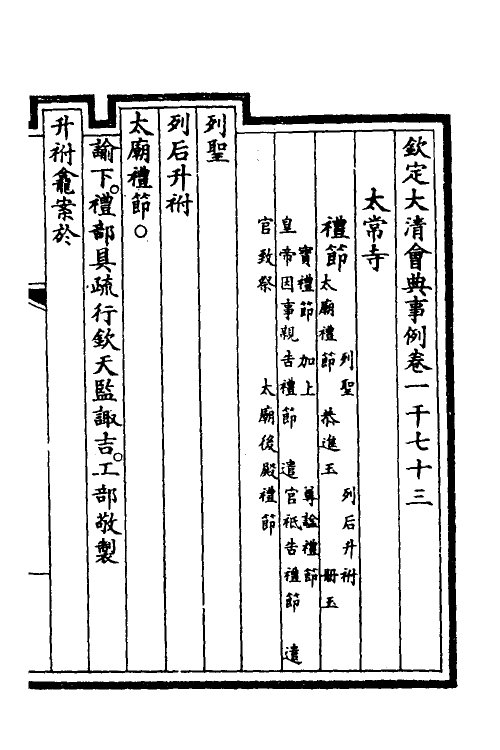 欽定大清會典事例卷一千七十三
太常寺
禮節
列聖 列后升祔
太廟禮節 恭進玉 冊玉
寶禮節 加上 尊諡禮節
皇帝因事親告禮節 遣官祗告禮節 遣
官致祭 太廟後殿禮節
列聖
列后升祔
太廟禮節○
諭下。禮部具疏行欽天監諏吉。工部敬製
升祔龕案於